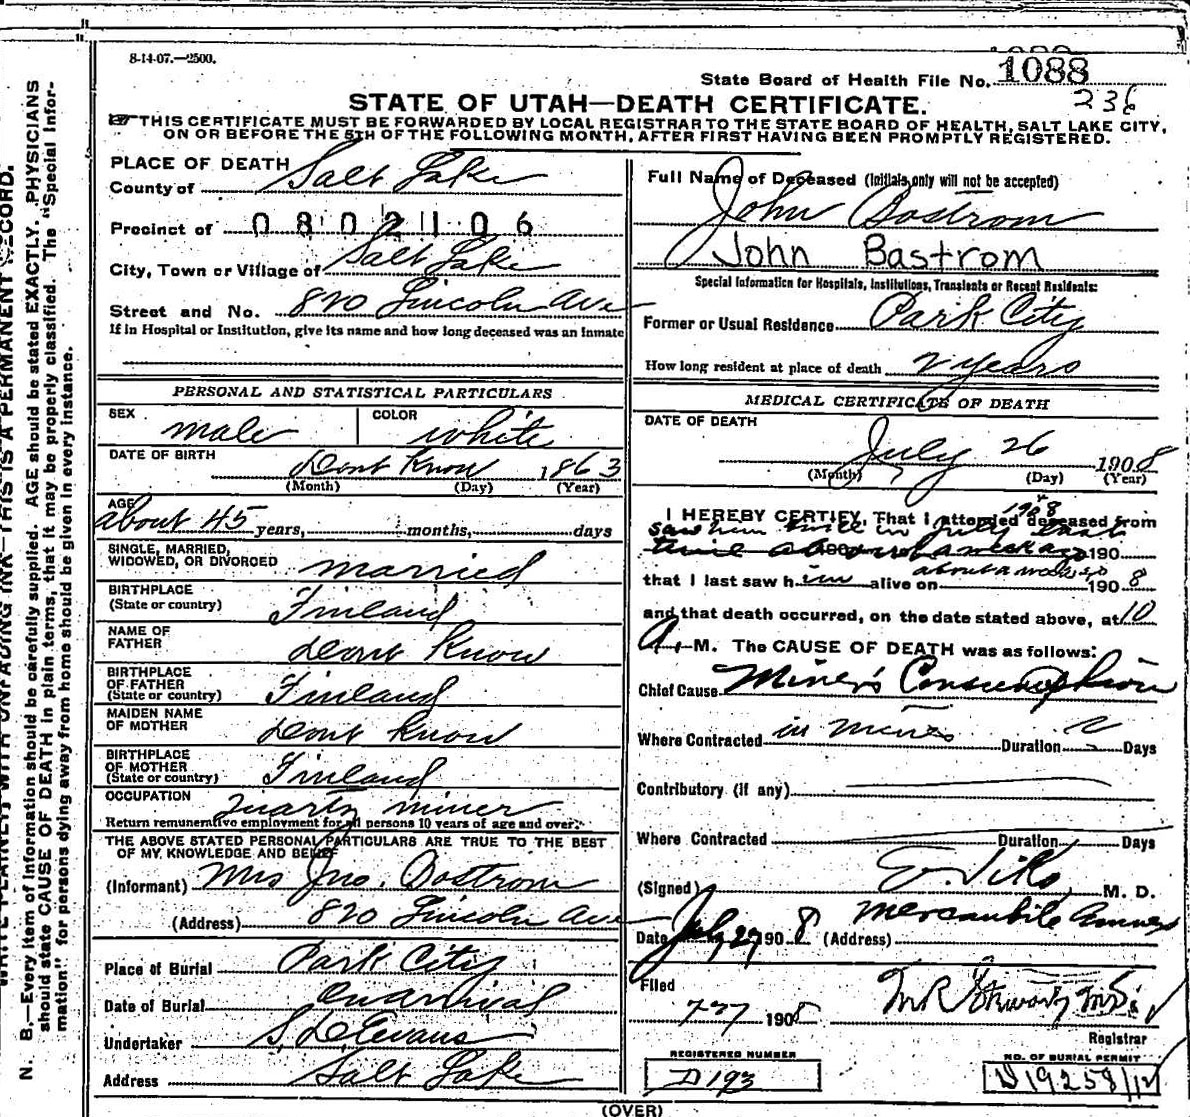 8-14-07.—2500.
State Board of Health File No. 1088
236
STATE OF UTAH—DEATH CERTIFICATE.
THIS CERTIFICATE MUST BE FORWARDED BY LOCAL REGISTRAR TO THE STATE BOARD OF HEALTH, SALT LAKE CITY,
ON OR BEFORE THE 5TH OF THE FOLLOWING MONTH, AFTER FIRST HAVING BEEN PROMPTLY REGISTERED.
PLACE OF DEATH
County of Salt Lake
Precinct of 0802106
City, Town or Village of Salt Lake
Street and No. 820 Lincoln Ave
If in Hospital or Institution, give its name and how long deceased was an inmate
PERSONAL AND STATISTICAL PARTICULARS
SEX male COLOR white
DATE OF BIRTH Dont Know 1863
(Month) (Day) (Year)
AGE about 45 years, months, days
SINGLE, MARRIED,
WIDOWED, OR DIVORCED married
BIRTHPLACE
(State or country) Finland
NAME OF
FATHER dont Know
BIRTHPLACE
OF FATHER
(State or country) Finland
MAIDEN NAME
OF MOTHER dont know
BIRTHPLACE
OF MOTHER
(State or country) Finland
OCCUPATION Quartz miner
Return remunerative employment for all persons 10 years of age and over.
THE ABOVE STATED PERSONAL PARTICULARS ARE TRUE TO THE BEST
OF MY KNOWLEDGE AND BELIEF
(Informant) Mrs Jno. Bostrom
(Address) 820 Lincoln Ave
Place of Burial Park City
Date of Burial on arrival
Undertaker S. D. Evans
Address Salt Lake
Full Name of Deceased (Initials only will not be accepted)
John Bostrom
John Bastrom
Special Information for Hospitals, Institutions, Transients or Recent Residents:
Former or Usual Residence Park City
How long resident at place of death 2 years
MEDICAL CERTIFICATE OF DEATH
DATE OF DEATH
July 26 1908
(Month) (Day) (Year)
I HEREBY CERTIFY, That I attended deceased from
1908
saw him twice in July last
time about a week ago 190
about a week ago
that I last saw him alive on 1908
and that death occurred, on the date stated above, at 10
A. M. The CAUSE OF DEATH was as follows:
Chief Cause Miner's Consumption
Where Contracted in mines Duration ? Days
Contributory (if any)
Where Contracted Duration Days
(Signed) M. D.
Date July 27 1908 (Address) Mercantile
Filed
7-27 1908 M R Stewart MD
Registrar
REGISTERED NUMBER
D193
NO. OF BURIAL PERMIT
D19258/12
(OVER)
N. B.—Every item of information should be carefully supplied. AGE should be stated EXACTLY. PHYSICIANS
should state CAUSE OF DEATH in plain terms, that it may be properly classified. The "Special Infor-
mation" for persons dying away from home should be given in every instance.
WRITE PLAINLY, WITH UNFADING INK—THIS IS A PERMANENT RECORD.